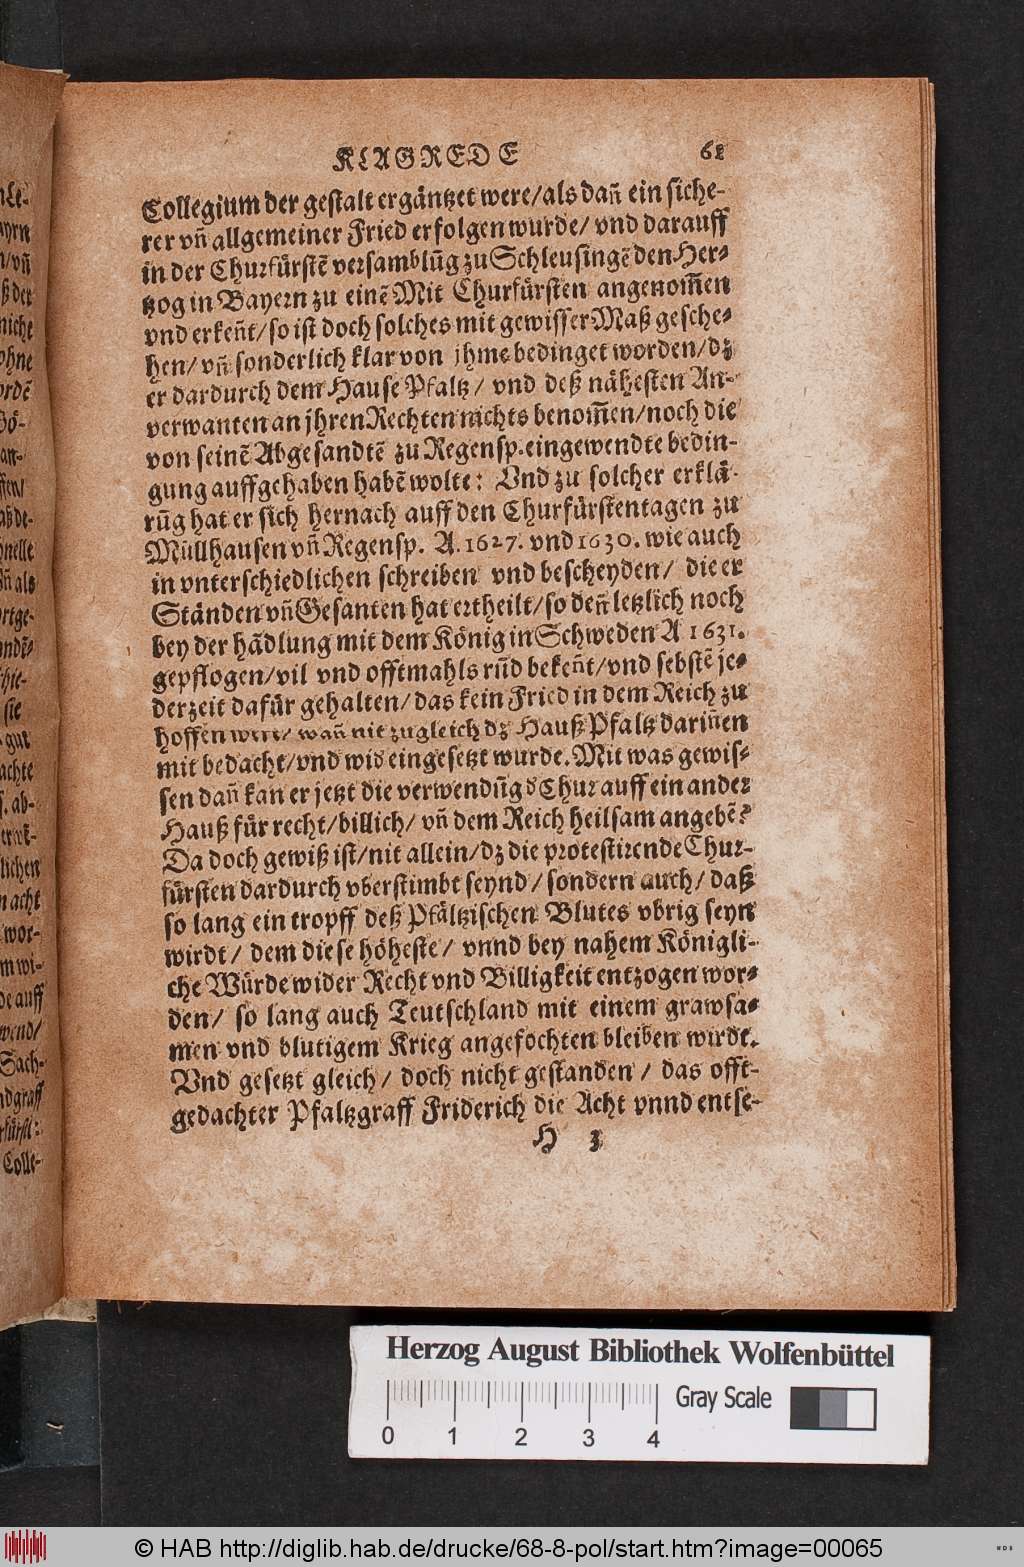 KLAGREDE 61
Collegium der gestalt ergäntzet were/als dañ ein siche-
rer vñ allgemeiner Fried erfolgen wurde/ vnd darauff
in der Churfürstẽ versamblũg zu Schleusingẽ den Her-
tzog in Bayern zu einẽ Mit Churfürsten angenom̃en
vnd erkeñt/so ist doch solches mit gewisser Maß gesche-
hen/ vñ sonderlich klar von jhme bedinget worden/dz
er dardurch dem Hause Pfaltz/ vnd deß nähesten An-
verwanten an jhren Rechten nichts benom̃en/noch die
von seinẽ Abgesandtẽ zu Regensp. eingewendte bedin-
gung auffgehaben habẽ wolte: Vnd zu solcher erklä-
rũg hat er sich hernach auff den Churfürstentagen zu
Müllhausen vñ Regensp. A. 1627. vnd 1630. wie auch
in vnterschiedlichen schreiben vnd bescheyden/ die er
Ständen vñ Gesanten hat ertheilt/so deñ letzlich noch
bey der hãdlung mit dem König in Schweden A 1631.
gepflogen/vil vnd offtmahls rũd bekeñt/vnd sebstẽ je-
derzeit dafür gehalten/das kein Fried in dem Reich zu
hoffen were/ wañ nit zugleich dz Hauß Pfaltz dariñen
mit bedacht/vnd wid eingesetzt wurde. Mit was gewis-
sen dañ kan er jetzt die verwendũg d' Chur auff ein ander
Hauß für recht/billich/ vñ dem Reich heilsam angebẽ?
Da doch gewiß ist/nit allein/dz die protestirende Chur-
fürsten dardurch vberstimbt seynd/ sondern auch/ daß
so lang ein tropff deß Pfältzischen Blutes vbrig seyn
wirdt/ dem diese höheste/ vnnd bey nahem Königli-
che Würde wider Recht vnd Billigkeit entzogen wor-
den/ so lang auch Teutschland mit einem grawsa-
men vnd blutigem Krieg angefochten bleiben wirdt.
Vnd gesetzt gleich/ doch nicht gestanden/ das offt-
gedachter Pfaltzgraff Friderich die Acht vnnd entse-
H 3
Herzog August Bibliothek Wolfenbüttel
Gray Scale
0 1 2 3 4
© HAB http://diglib.hab.de/drucke/68-8-pol/start.htm?image=00065